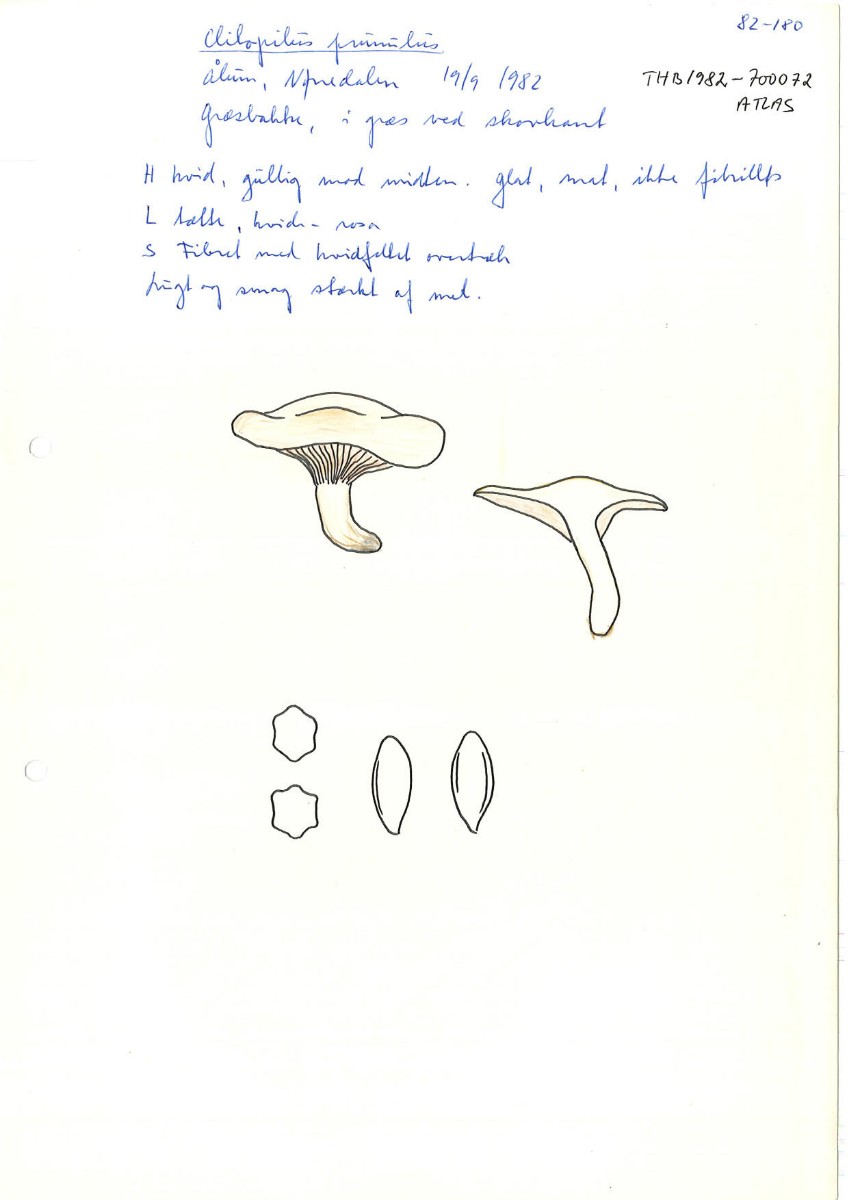 82-180
Clitopilus prunulus
Ålum, Nørredalen 19/9 1982
THB1982-700072
ATLAS
Græsbakke, i græs ved skovkant
H hvid, gullig mod midten. glat, mat, ikke fibrilløs
L tætte, hvide - rosa
S Fibret med hvidfiltet overtræk
Lugt og smag stærkt af mel.